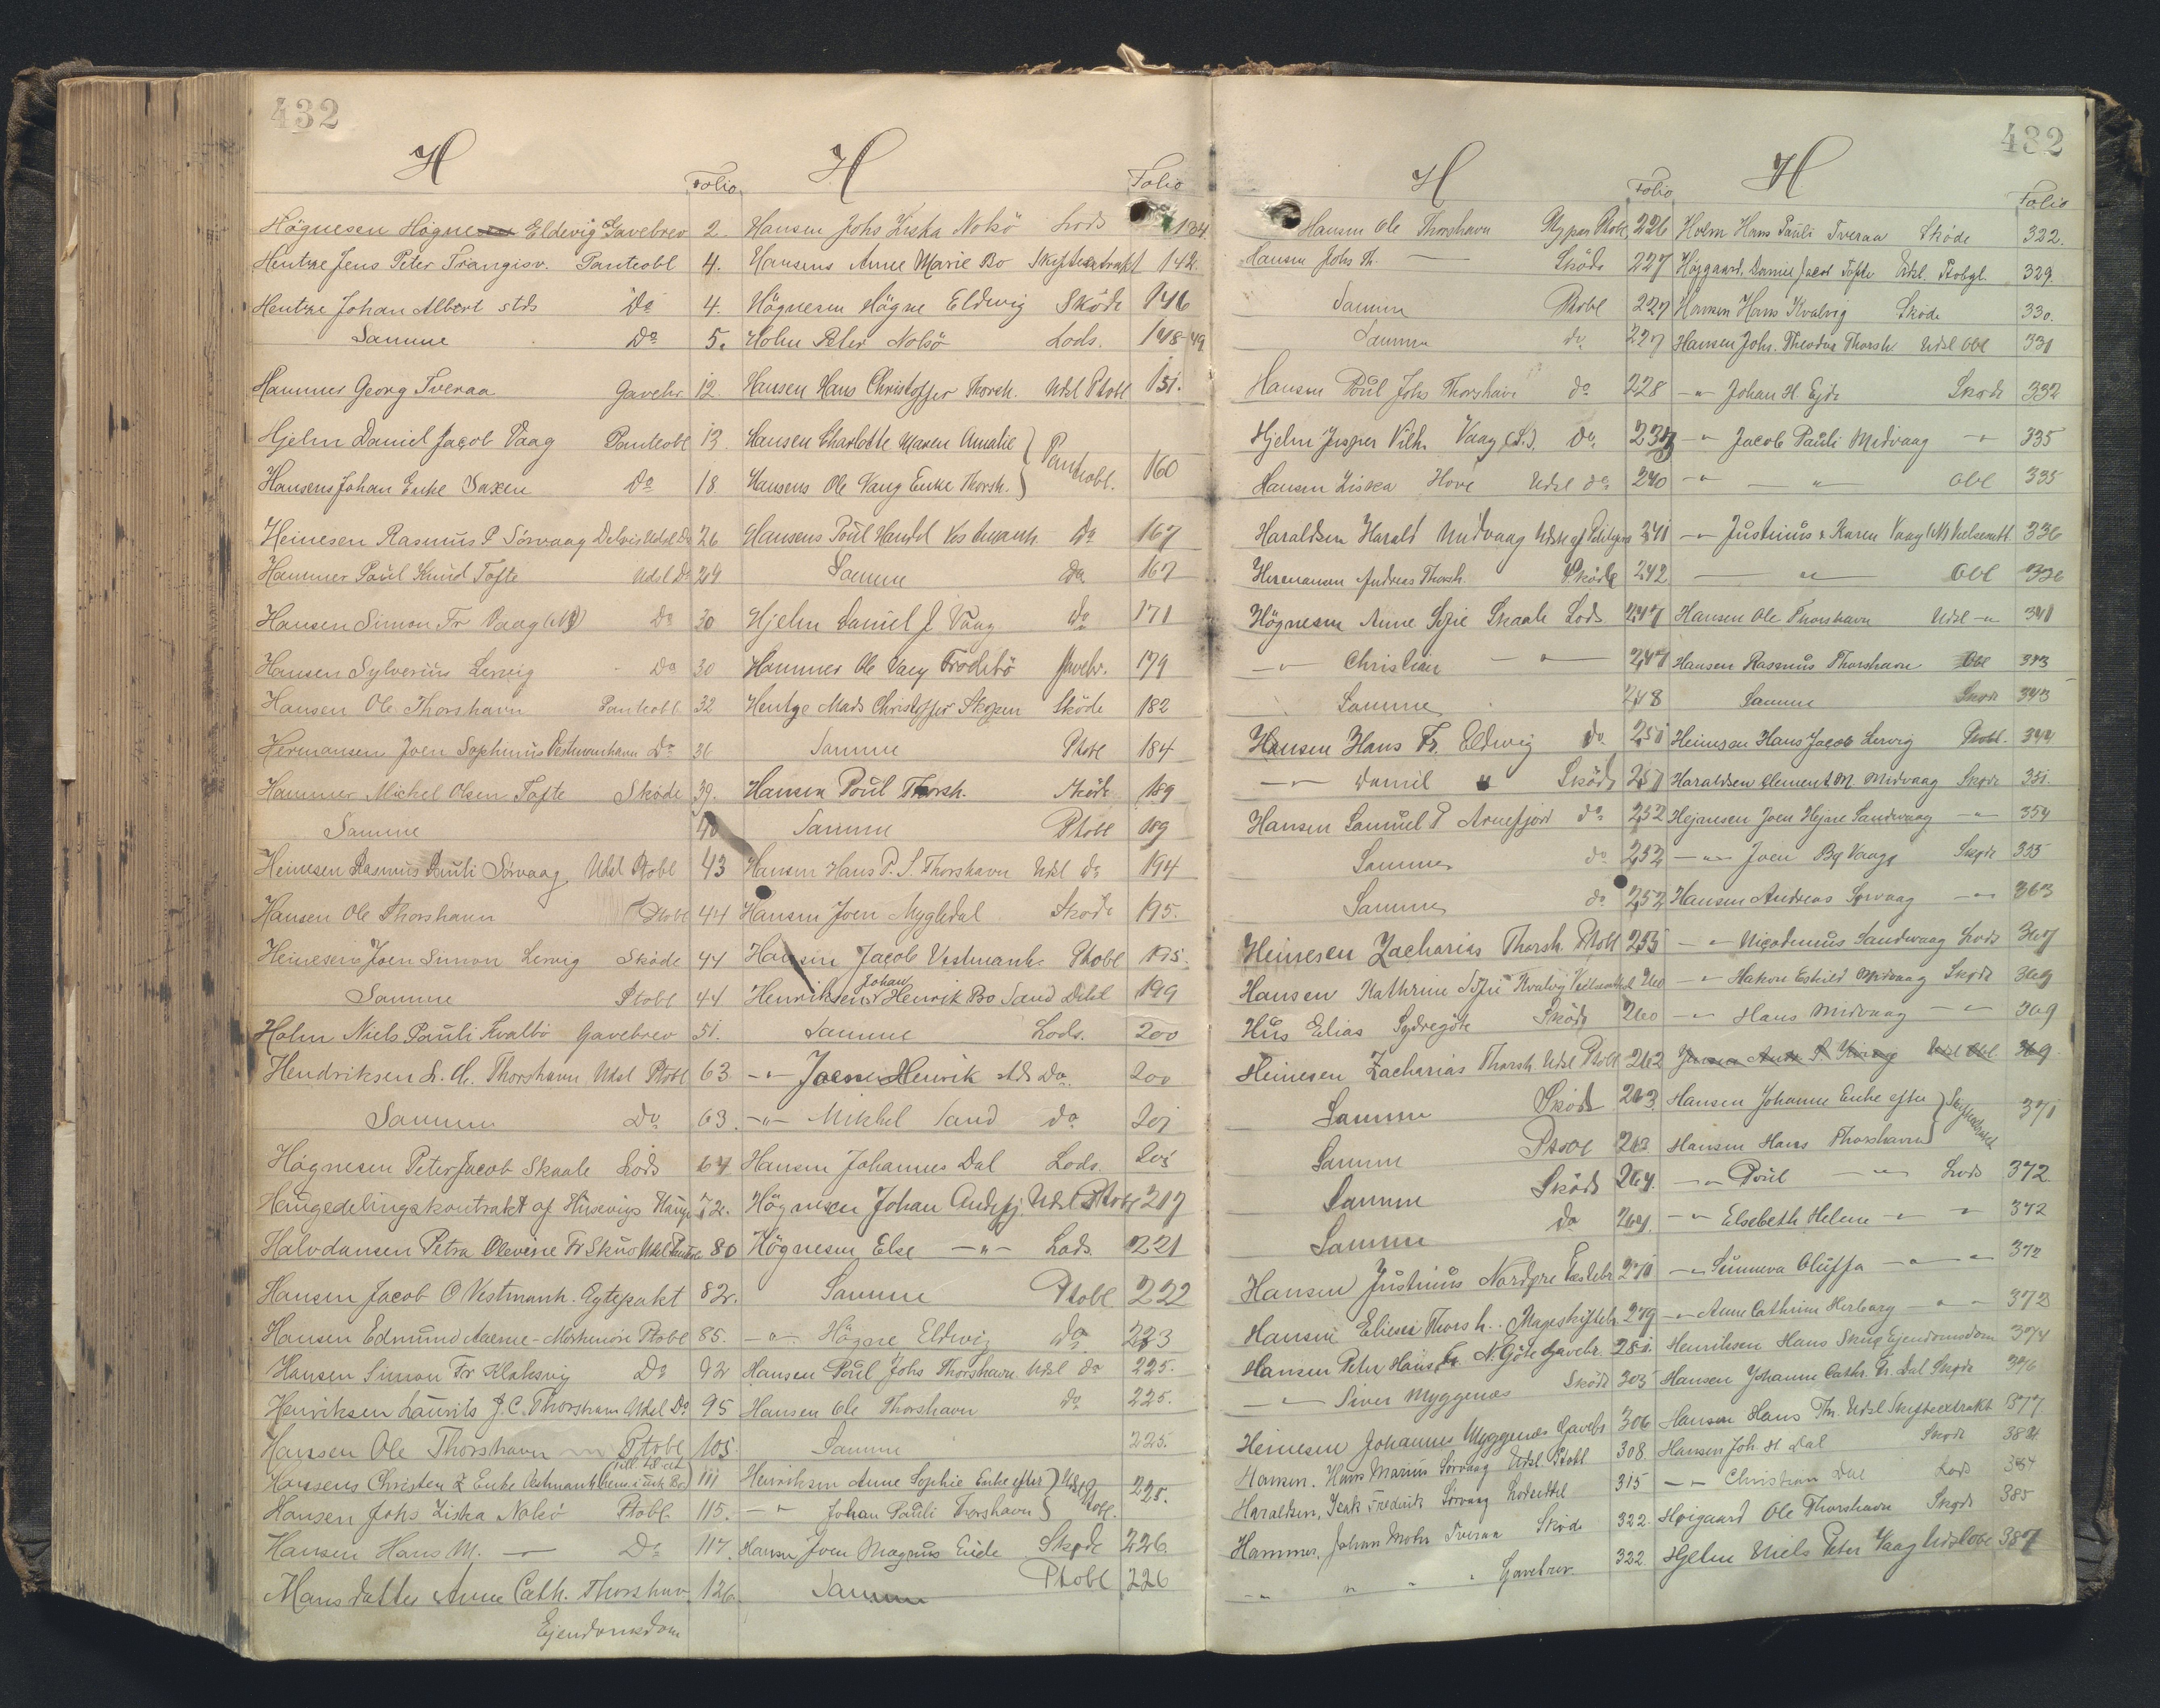 432
H Folio
Högnesen Högne Eldevig Gavebrev 2.
Hentze Jens Peter Frangisv. Panteobl 4.
Hentze Johan Albert stds Do 4.
Samme Do 5.
Hammer Georg Tveraa Gavebr. 12.
Hjelm Daniel Jacob Vaag Panteobl 13.
Hansens Johan Enke Saxen Do 18.
Heinesen Rasmus P Sörvaag Delvis Udsl Do 26
Hammer Paul Knud Tofte Udsl Do 29
Hansen Simon Fr Vaag (N) Do 30
Hansen Sylverius Lervig Do 30
Hansen Ole Thorshavn Panteobl. 32
Hermansen Joen Sophinus Vestmanhavn Do 36
Hammer Michel Olsen Tofte Sköde 39.
Samme 40
Heinesen Rasmus Pauli Sörvaag Udsl Ptobl 43
Hansen Ole Thorshavn Ptobl 44
Heinesen Joen Simon Lervig Sköde 44
Samme Ptobl 44
Holm Niels Pauli Kvalbö Gavebrev 51.
Hendriksen Thorshavn Udsl Ptobl 63.
Samme Do 63.
Högnesen Peter Jacob Skaale Lods 64
Haugedelingskontrakt af Husevigs Hauge 72.
Halvdansen Petra Olevine Fr Skuö Udsl 80
Hansen Jacob O Vestmanh. Egtepakt 82.
Hansen Edmund Ptobl 85.
Hansen Simon Fr Klaksvig Do 92
Henriksen Laurits J. C. Thorshavn Udsl Do 95
Hansen Ole Thorshavn Ptobl 105.
Hansens Christen Z Enke Vestmanh 111
Hansen Johs Ziska Nolsö Ptobl. 115.
Hansen Hans M. — Do 117.
Hansdatter Anne Cath. Thorshav 126.
Ejendomsdom
H Folio
Hansen Johs Ziska Nolsö Lods 134.
Hansens Anne Marie Bo Skifteextrakt 142.
Högnesen Högne Eldevig Sköde 146
Holm Peter Nolsö Lods. 148-49
Hansen Hans Christoffer Thorsh. Udsl Ptobl 151.
Hansen Charlotte Maren Amalie
Hansens Ole Vang Enke Thorsh. } Panteobl. 160
Hansens Poul Handel Vestmanh. Do 167
Samme Do 167
Hjelm Daniel J Vaag Do 171
Hammer Ole Vaag Frodebö Gavebr. 179
Hentze Mads Christoffer Skopen Sköde 182
Samme Ptobl 184
Hansen Poul Thorsh. Sköde 189
Samme Ptobl 189
Hansen Hans P. S. Thorshavn Udsl do 194
Hansen Joen Mygledal Skode 195.
Hansen Jacob Vestmanh. Ptobl 195.
Johan
Henriksen Henrik Bo Sand 199
Samme Lods. 200
-"- Joen Henrik stds Do. 200
-"- Mikkel Sand do 201
Hansen Johannes Dal Lods. 205
Högnesen Johan Andefj. Udsl Ptobl 217
Högnesen Else -"- Lods. 221
Samme Ptobl 222
-"- Högne Eldevig Do 223
Hansen Poul Johs Thorshavn Udsl do 225.
Hansen Ole Thorshavn do 225.
Samme 225.
Henriksen Anne Sophie Enke efter
-"- Johan Pauli Thorshavn } Udsl Ptobl. 225.
Hansen Joen Magnus Eide Skøde 226
Samme Ptobl 226
432
H Folio
Hansen Ole Thorshavn 226
Hansen Johs Th. — Sköde 227
Samme Ptobl 227
Samme do 227
Hansen Poul Johs Thorshavn do 228
Hjelm Jesper Vilh. Vaag (S.) Do.
Hansen Ziska Hove Udsl do. 240
Haraldsen Harald Midvaag 241
Hermansen Andreas Thorsh. Sköde 242
Högnesen Anne Sofie Skaale Lods 247
-"- Christian -"- 247
Samme 248
Hansen Hans Fr. Eldevig do 250
-"- Daniel " Sköde 251
Hansen Samuel P Arnefjord do 252
Samme do 252
Samme do 252
Heinesen Zacharias Thorsh. Ptobl 255
Hansen Kathrine Sofie Kvalvig 260
Hus Elias Sydregöte Sköde 260
Heinesen Zacharias Thorsh. Udsl Ptobl 262
Samme Sköde 263
Samme Ptobl 263.
Samme Sköde 264.
Samme do 264.
Hansen Justinus Nordøre Festebr. 270
Hansen Thorsh. Mageskiftebr. 279
Hansen Peter Hans Fr. N. Göte Gavebr. 281.
-"- Siver Myggenæs Sköde 303
Heinesen Johannes Myggenæs Gavebr 306
Hansen, Hans Marius Sörvaag Udsl Ptobl 308
Haraldsen, Isak Fredrik Sörvaag 315
Hammer, Johan Mohr Tveraa Sköde 322.
-"- " " " Gavebrev 322
H Folio
Holm Hans Pauli Tveraa Sköde 322.
Højgaard, Daniel Jacob Tofte Udsl. Ptobgl. 329.
Hansen Hans Kvalvig Sköde 330.
Hansen Johs. Theodor Thorsh. Udsl Obl 331
-"- Johan H. Ejde Skøde 332
-"- Jacob Pauli Midvaag -"- 335
-"- — " Obl 335
-"- Justinus & Karen Vaag (N) 336
— " Obl 336
Hansen Ole Thorshavn Udsl -"- 341
Hansen Rasmus Thorshavn Obl 343
Samme Skøde 343
Heinesen Hans Jacob Lervig Ptobl. 344
Haraldsen Clement M. Midvaag Skøde 351.
Hejnesen Joen Hejne Sandevaag -"- 354
-"- Joen By Vaage Skøde 355
Hansen Andreas Sørvaag -"- 363
-"- Nicodemus Sandevaag Lods 367
-"- Hakon Eskild Midvaag Skøde 369
-"- Hans Midvaag -"- 369
Udsl Obl. 369
Hansen Johanne Enke efter
Hansen Hans Thorshavn } Skifteextrakt 371
-"- Poul -"- Lods 372.
-"- Elsebeth Helene -"- 372
-"- Sunneva Oluffa -"- 372
-"- Anne Cathrine Herborg -"- 373
Henriksen Hans Skuø Ejendomsdom 374
Hansen Johanne Cathr. Fr. Dal Skøde 376
Hansen Hans Th. Udsl Skifteextrakt 377.
Hansen Joh. H Dal Skøde 384.
-"- Christian Dal Lods 384
Høigaard Ole Thorshavn Skøde 385
Hjelm Niels Peter Vaag Udsl Obl 387